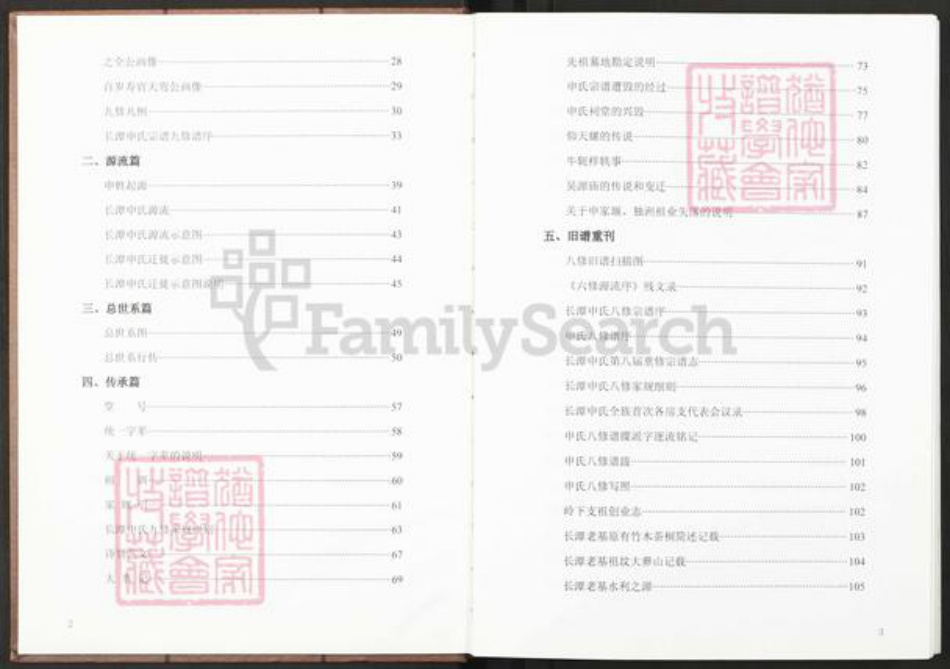 之全公画像 28
百岁寿官天雪公画像 29
九修凡例 30
长潭申氏宗谱九修谱序 33
二、源流篇
申姓起源 39
长潭申氏源流 41
长潭申氏源流示意图 43
长潭申氏迁徙示意图 44
长潭申氏迁徙示意图说明 45
三、总世系篇
总世系图 49
总世系行传 50
四、传承篇
堂 号 57
统一字辈 58
关于统一字辈的说明 59
60
家 61
长潭申氏九修 63
67
69
2
先祖墓地勘定说明 73
申氏宗谱遭毁的经过 75
申氏祠堂的兴毁 77
仰天螺的传说 80
牛轭样轶事 82
吴源庙的传说和变迁 84
关于申家堰、独洲祖业失落的说明 87
五、旧谱重刊
八修旧谱扫描图 91
《六修源流序》残文录 92
长潭申氏八修宗谱序 93
申氏八修谱序 94
长潭申氏第八届重修宗谱志 95
长潭申氏八修家规细则 96
长潭申氏全族首次各房支代表会议录 98
申氏八修谱牒派字逐流铭记 100
申氏八修谱跋 101
申氏八修写照 102
岭下支祖创业志 102
长潭老基原有竹木茶桐简述记载 103
长潭老基祖坟大葬山记载 104
长潭老基水利之源 105
3
FamilySearch
猶他家
譜學會
收藏
猶他家
譜學會
收藏